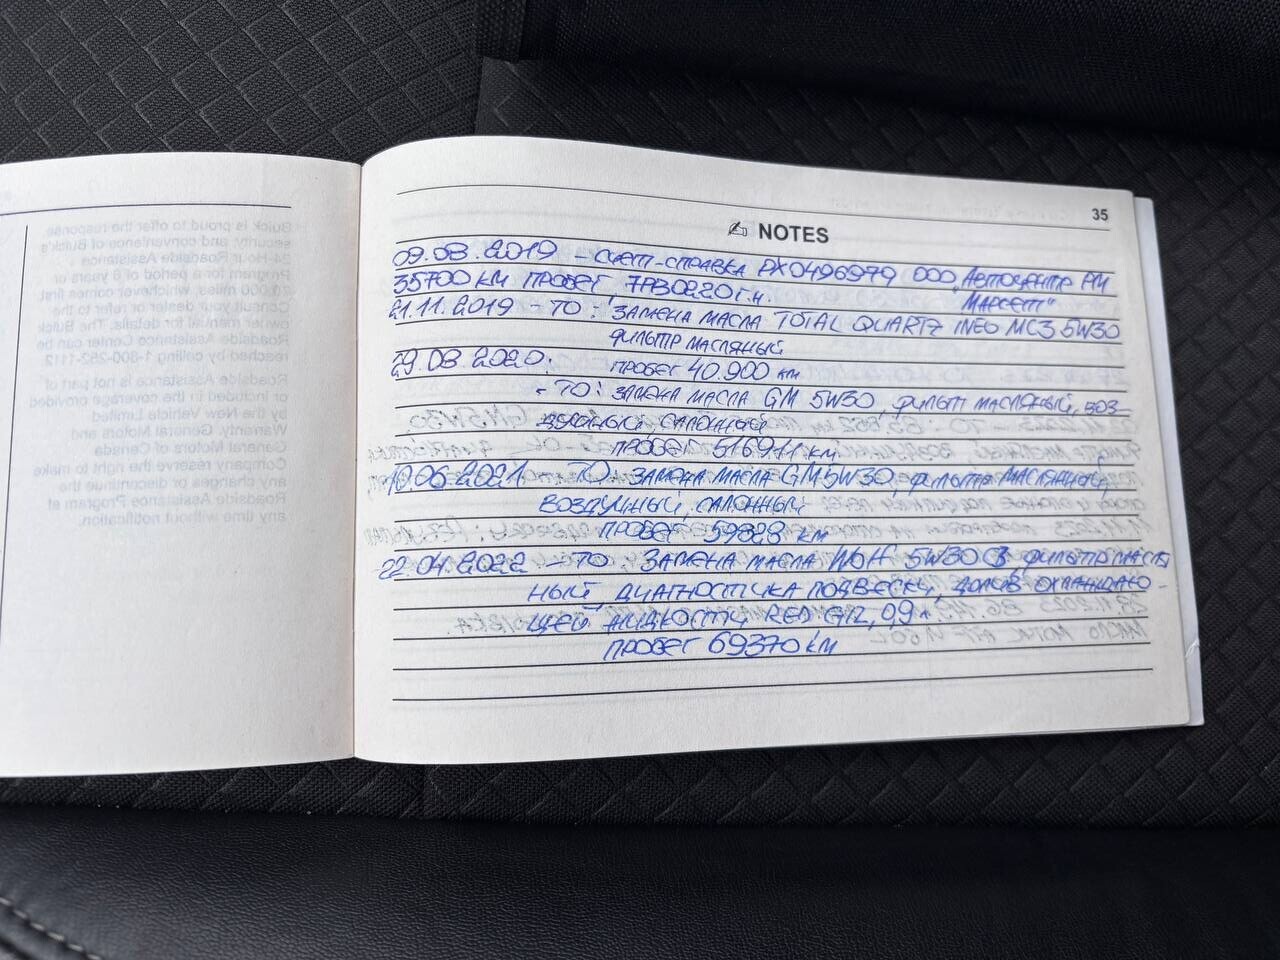 35
NOTES
09.08.2019 - СЧЕТ-СПРАВКА РХ0496979 ООО „АВТОЦЕНТР РМ
35700 КМ ПРОБЕГ 7АВ0220 Г.Н. МАРСЕТ"
21.11.2019 - ТО: ЗАМЕНА МАСЛА TOTAL QUARTZ INEO MC3 5W30
ФИЛЬТР МАСЛЯНЫЙ
29.08.2020. ПРОБЕГ 40.900 КМ
- ТО: ЗАМЕНА МАСЛА GM 5W30 ФИЛЬТ МАСЛЯНЫЙ, ВОЗ-
ДУШНЫЙ САЛОННЫЙ
ПРОБЕГ КМ
10.06.2021. ТО: ЗАМЕНА МАСЛА GM5W30, ФИЛЬТР МАСЛЯННЫЙ,
ВОЗДУШНЫЙ, САЛОННЫЙ
ПРОБЕГ 59828 КМ
22.04.2022 - ТО: ЗАМЕНА МАСЛА 5W30 ФИЛЬТР МАСЛЯ
НЫЙ, ДИАГНОСТИКА ПОДВЕСКИ, ДОЛИВ ОХЛАЖДАЮ-
ЩЕЙ ЖИДКОСТИ RED G12, 0,9 л.
ПРОБЕГ 69370 КМ
Buick is proud to offer the response,
security and convenience of Buick's
24-Hour Roadside Assistance
Program for a period of 6 years or
miles, whichever comes first.
Consult your dealer or refer to the
owner manual for details. The Buick
Roadside Assistance Center can be
reached by calling 1-800-252-1112.
Roadside Assistance is not part of
or included in the coverage provided
by the New Vehicle Limited
Warranty. General Motors and
General Motors of Canada
Company reserve the right to make
any changes or discontinue the
Roadside Assistance Program at
any time without notification.